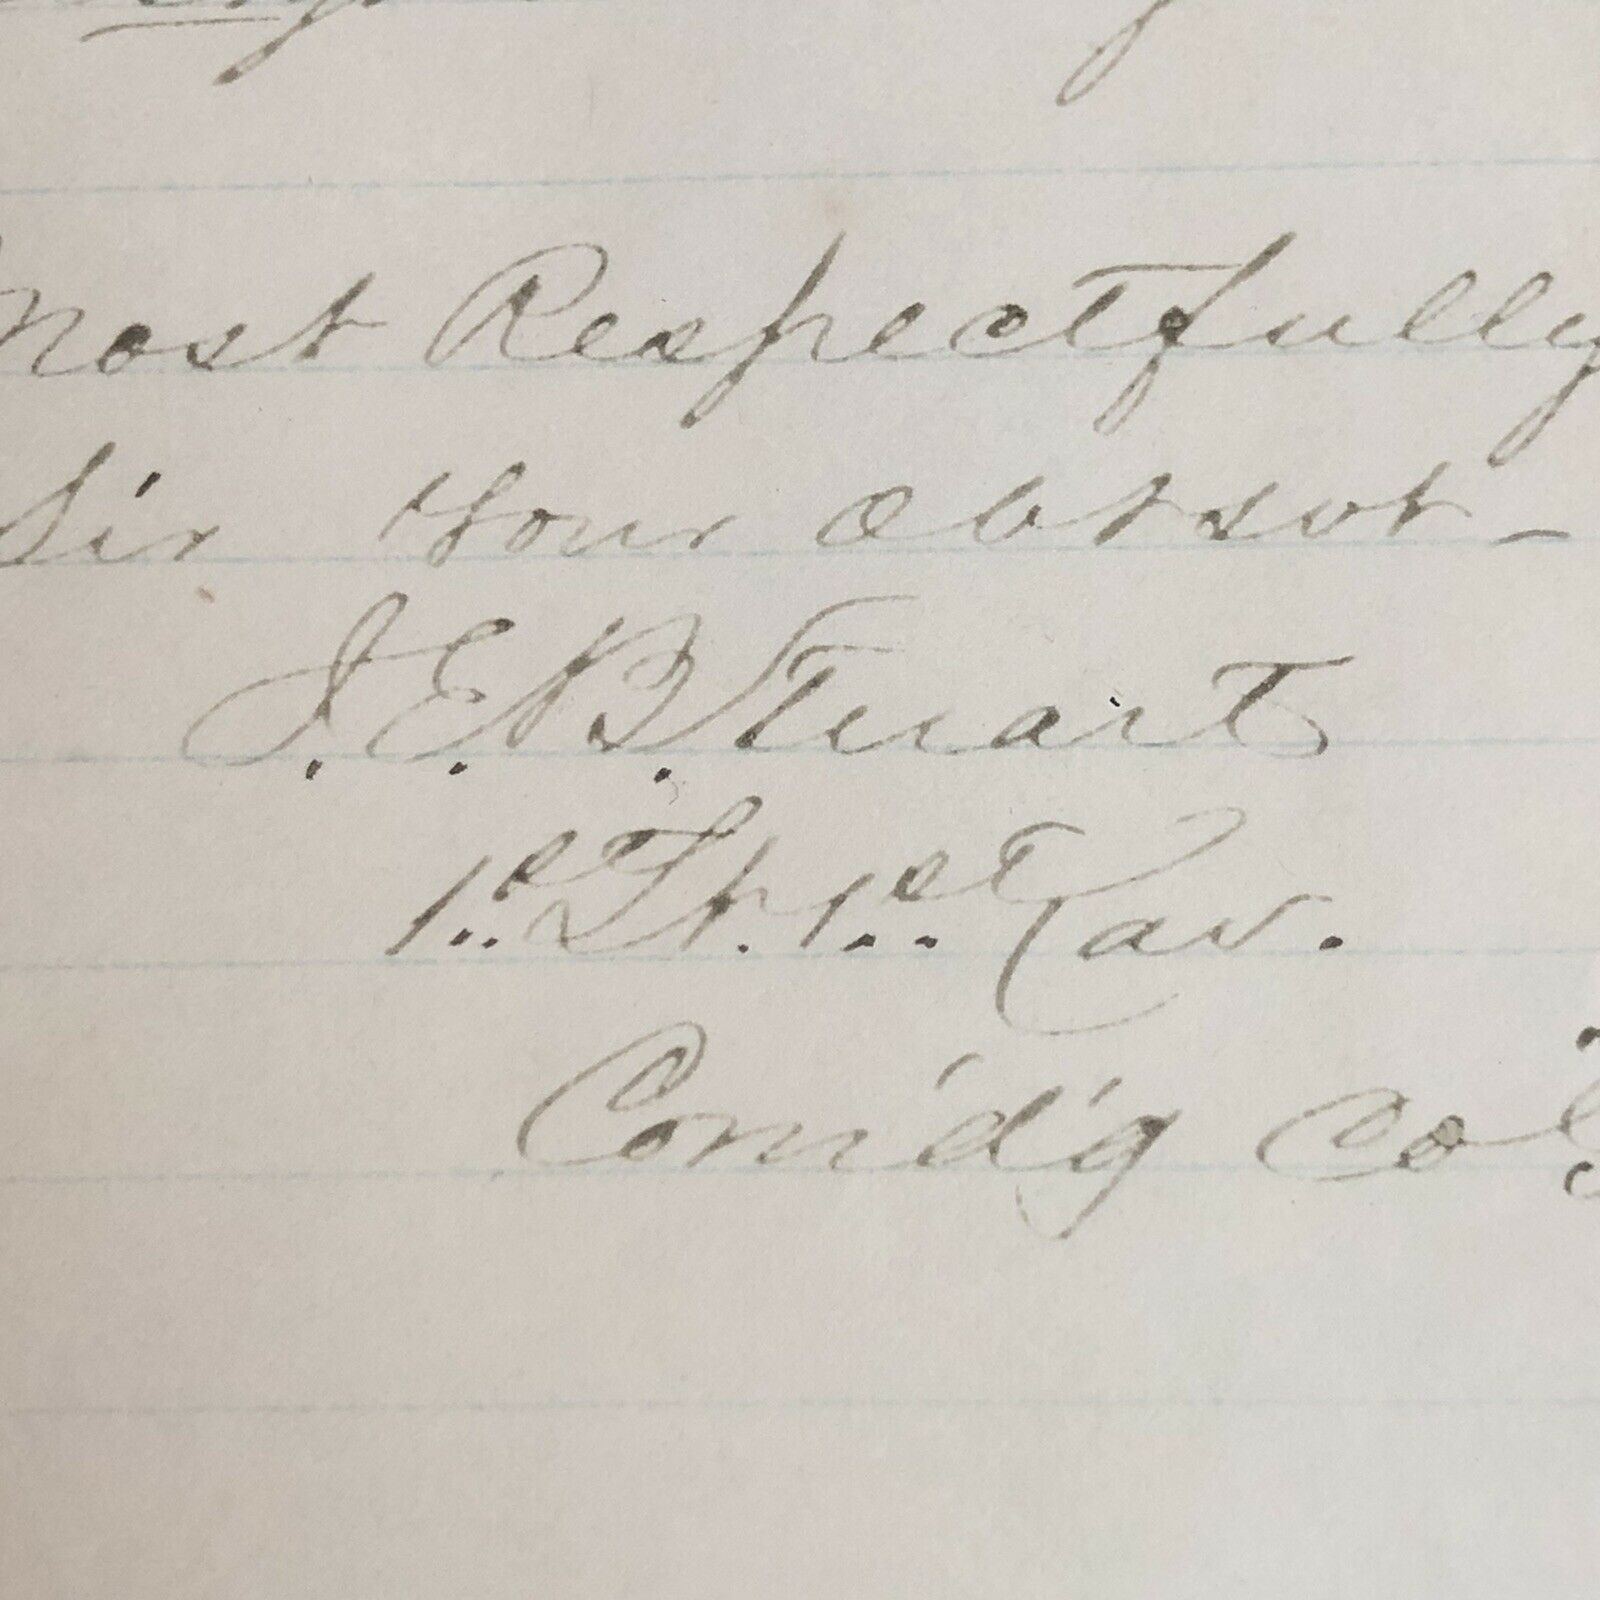 Most Respectfully
Sir Your Obt svt -
J.E.B. Stuart
1st Lt. 1st Cav.
Com'd'g Co